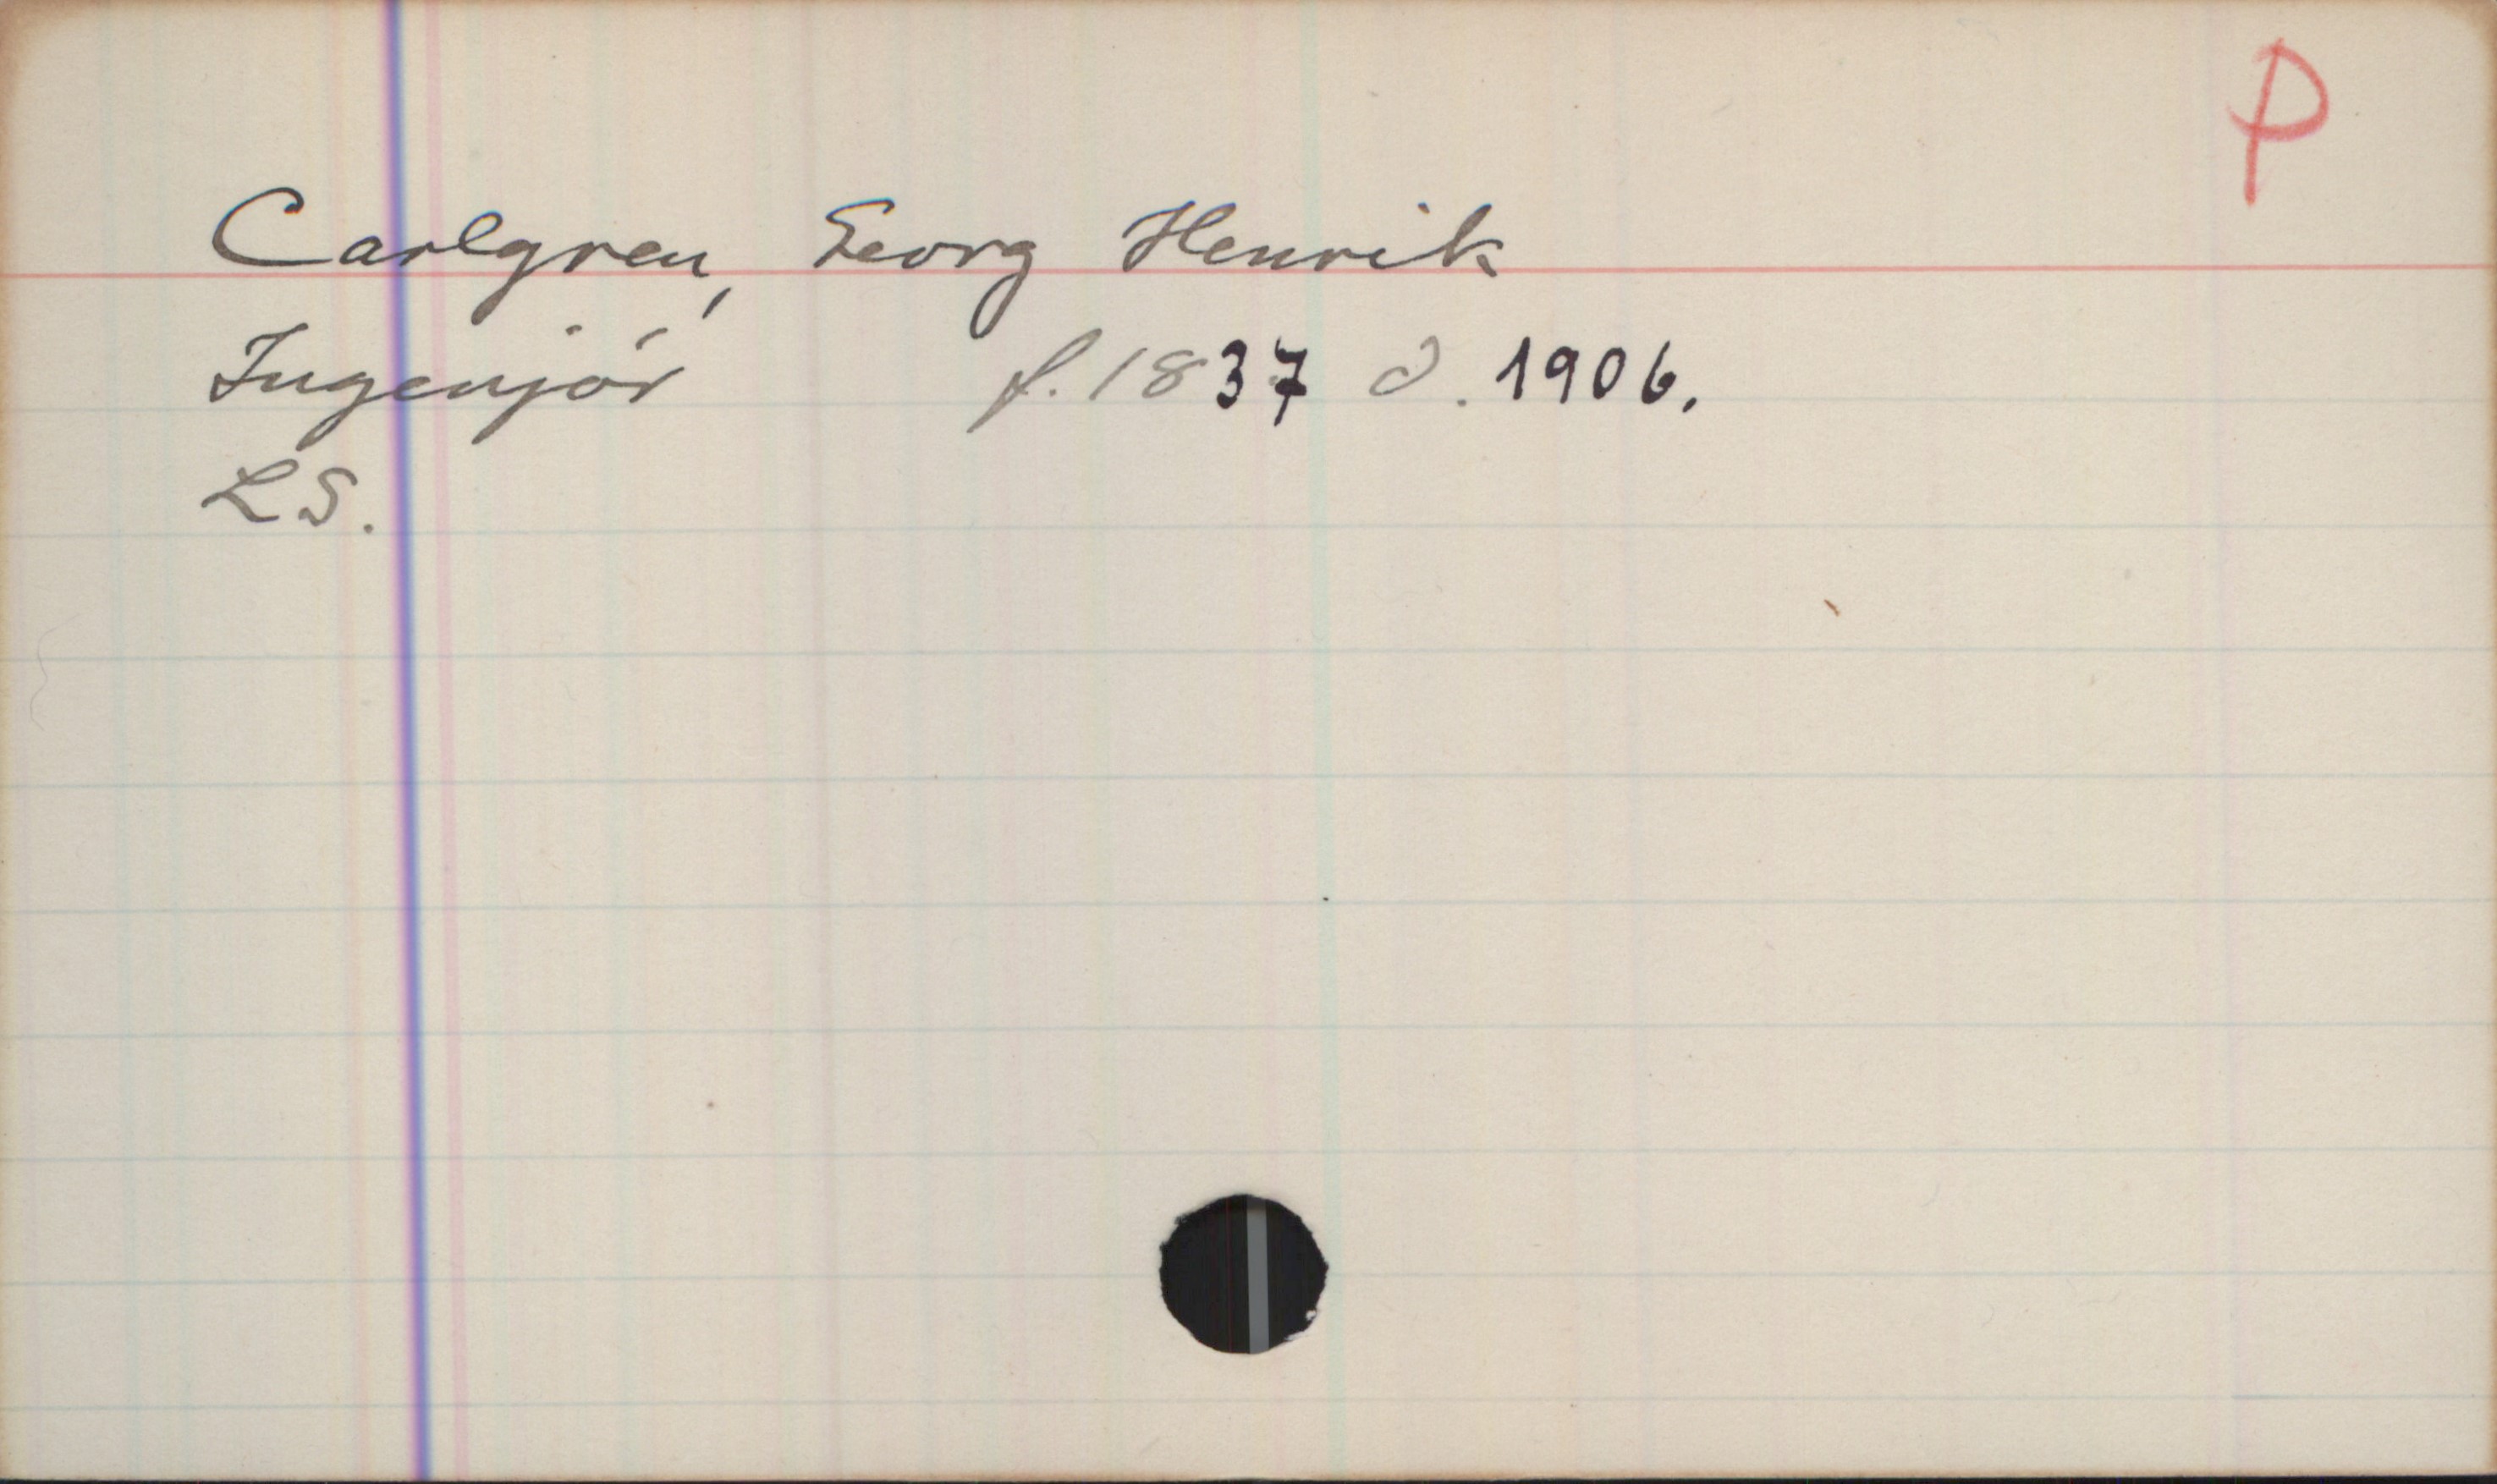 P
Carlgren, Georg Henrik
Ingenjör f. 1837 d. 1906.
LS.